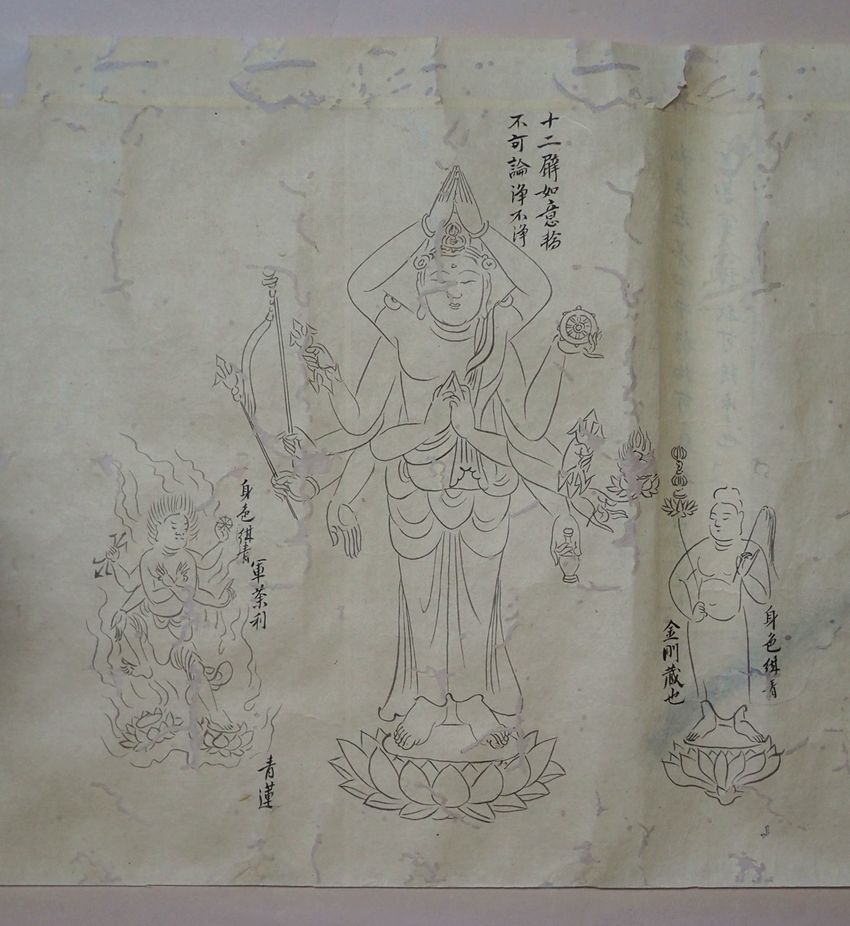 十二臂如意輪
不可論浄不浄
身色紺青
金剛蔵也
身色紺青
軍荼利
青蓮